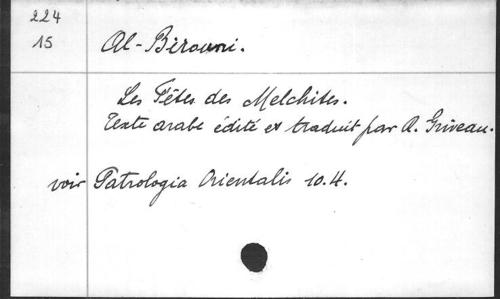 224
15
Al-Bîrouni.
Les Fêtes des Melchites.
Texte arabe édité et traduit par R. Griveau.
voir Patrologia Orientalis 10.4.